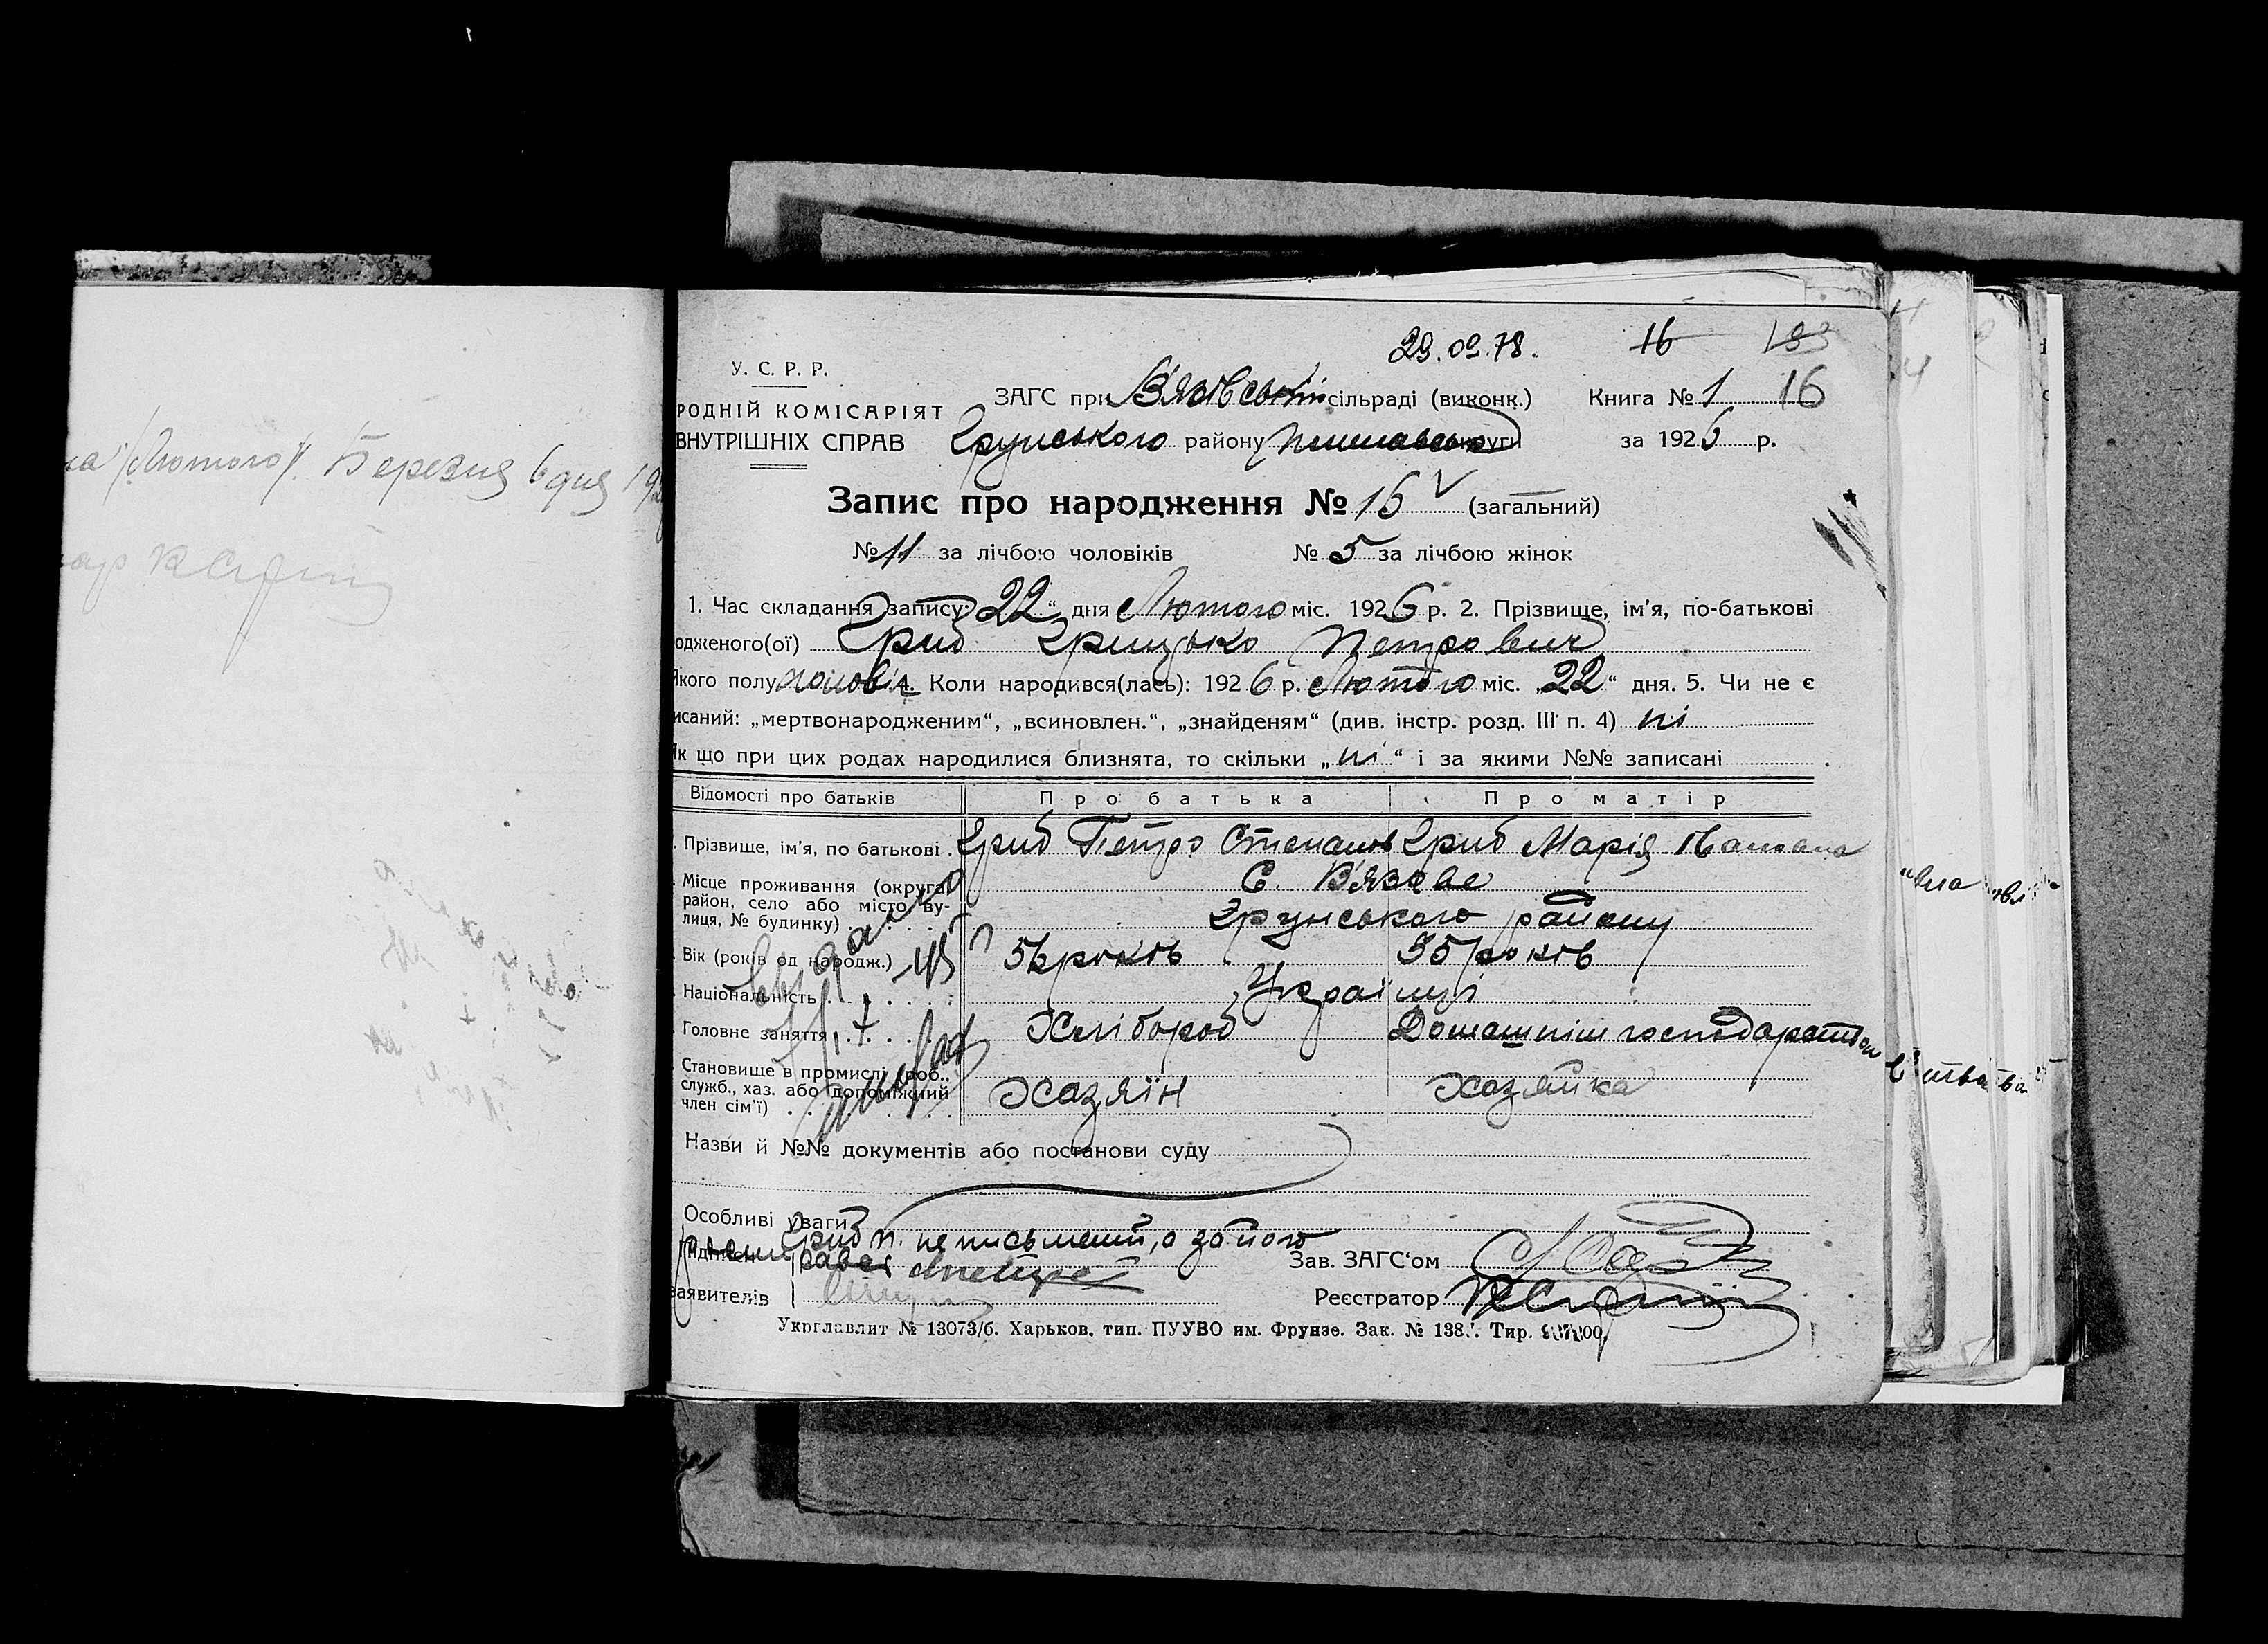 /Лютого/. Березня 6 дня 19
29.09.78.
16
У. С. Р. Р.
РОДНІЙ КОМІСАРІЯТ
ВНУТРІШНІХ СПРАВ
ЗАГС при В'язівській сільраді (виконк.) Книга № 1 16
Грунського району округи за 1926 р.
Запис про народження № 16 (загальний)
№ 11 за лічбою чоловіків № 5 за лічбою жінок
1. Час складання запису: 22 “ дня Лютого міс. 1926 р. 2. Прізвище, ім’я, по-батькові
одженого(ої) Гриб Грицько Петрович
Якого полу чолов'ч. 4. Коли народився(лась): 1926 р. Лютого міс. „22“ дня. 5. Чи не є
исаний: „мертвонародженим“, „всиновлен.“, „знайденям“ (див. інстр. розд. III п. 4) ні
Як що при цих родах народилися близнята, то скільки „ні“ і за якими №№ записані
Відомості про батьків Про батька Про матір
. Прізвище, ім’я, по батькові . Гриб Петро Степанов Гриб Марія Іванова
Місце проживання (округа, район, село або місто, ву-
лиця, № будинку) С. В'язове
Грунського району
. Вік (років од народж.) років 35 років
. Національність Українці
. Головне заняття Хлібороб Домашнім господарством
. Становище в промислі (роб.,
служб., хаз. або допоміжний
член сім’ї) Хазяїн хазяйка
Назви й №№ документів або постанови суду
Особливі уваги
Гриб П. неписьмений, а за його
Підписи
заявителів
Зав. ЗАГС‘ом
Реєстратор
Укрглавлит № 13073/б. Харьков, тип. ПУУВО им. Фрунзе. Зак. № 138 . Тир.